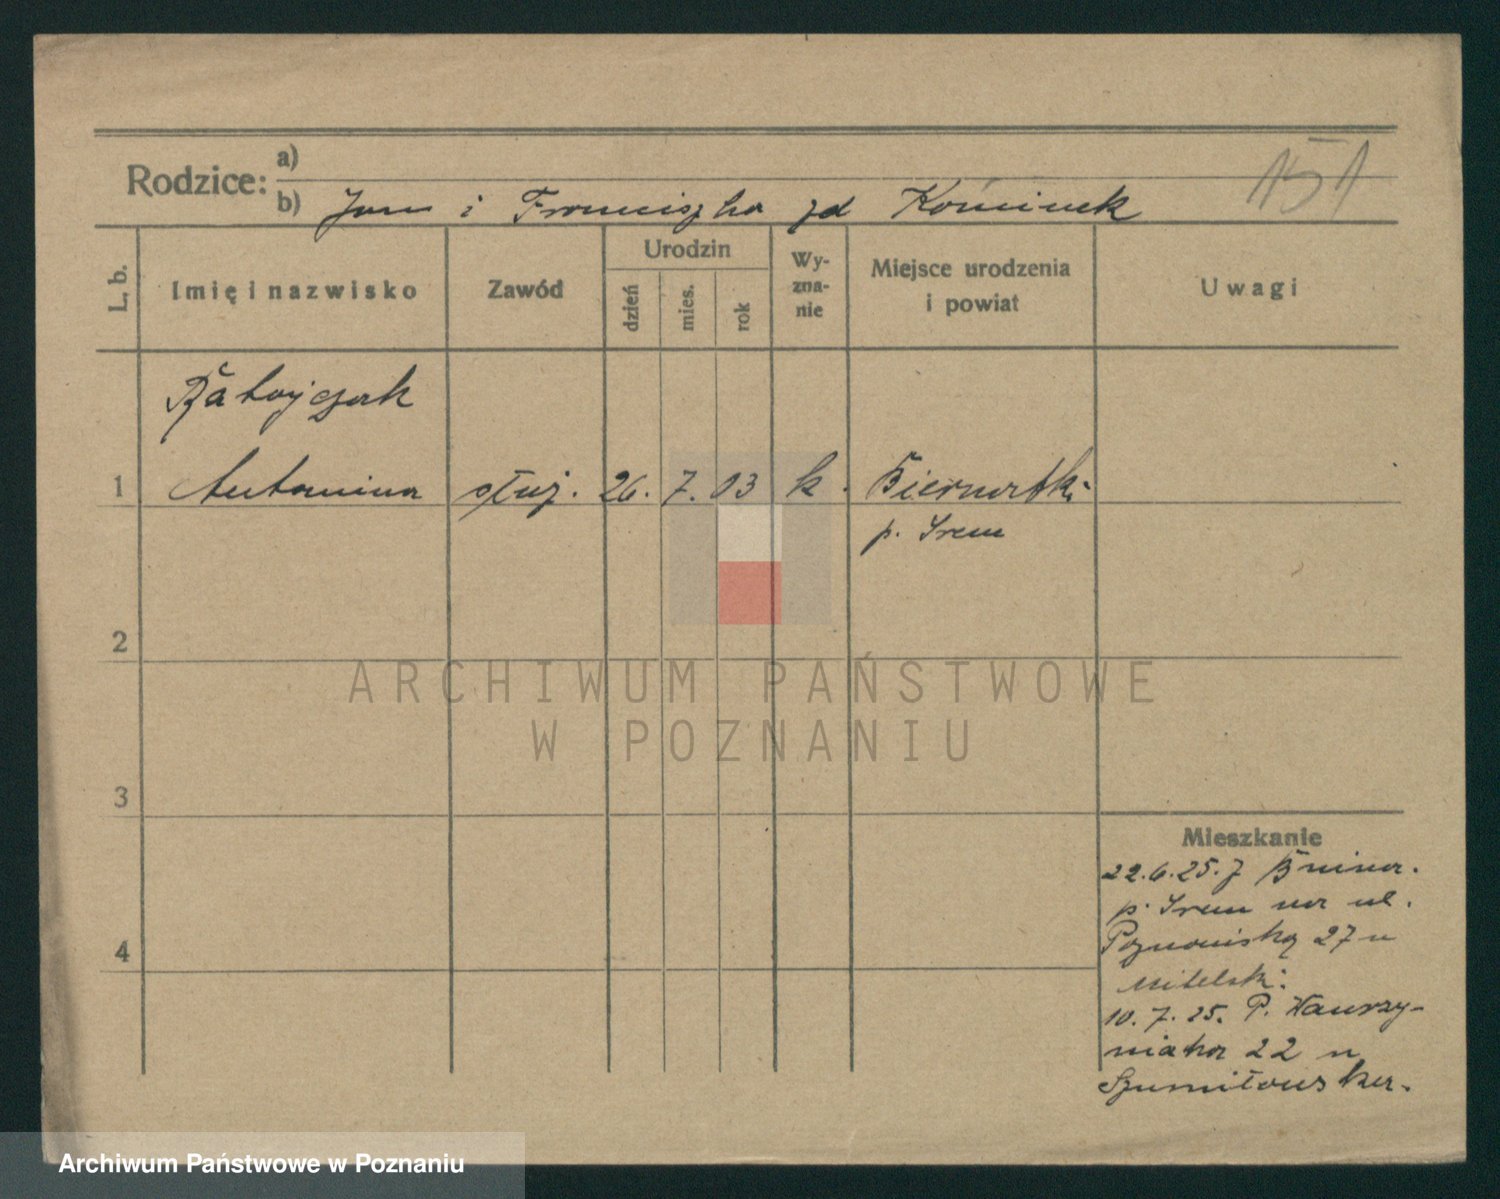 151
Rodzice: a)
b) Jan i Franciszka zd Kominek
L. b.
Imię i nazwisko
Zawód
Urodzin
dzień
mies.
rok
Wy-
zna-
nie
Miejsce urodzenia
i powiat
Uwagi
Ratajczak
1 Antonina służ. 26. 7. 03 k. Biernatki
p. Śrem
2
3
4
ARCHIWUM PAŃSTWOWE
W POZNANIU
Mieszkanie
22.6.25. z Bnina.
p. Śrem na ul.
Poznańską 27 u
10. 7. 25. P. Wawrzy-
niaka 22 u
Archiwum Państwowe w Poznaniu